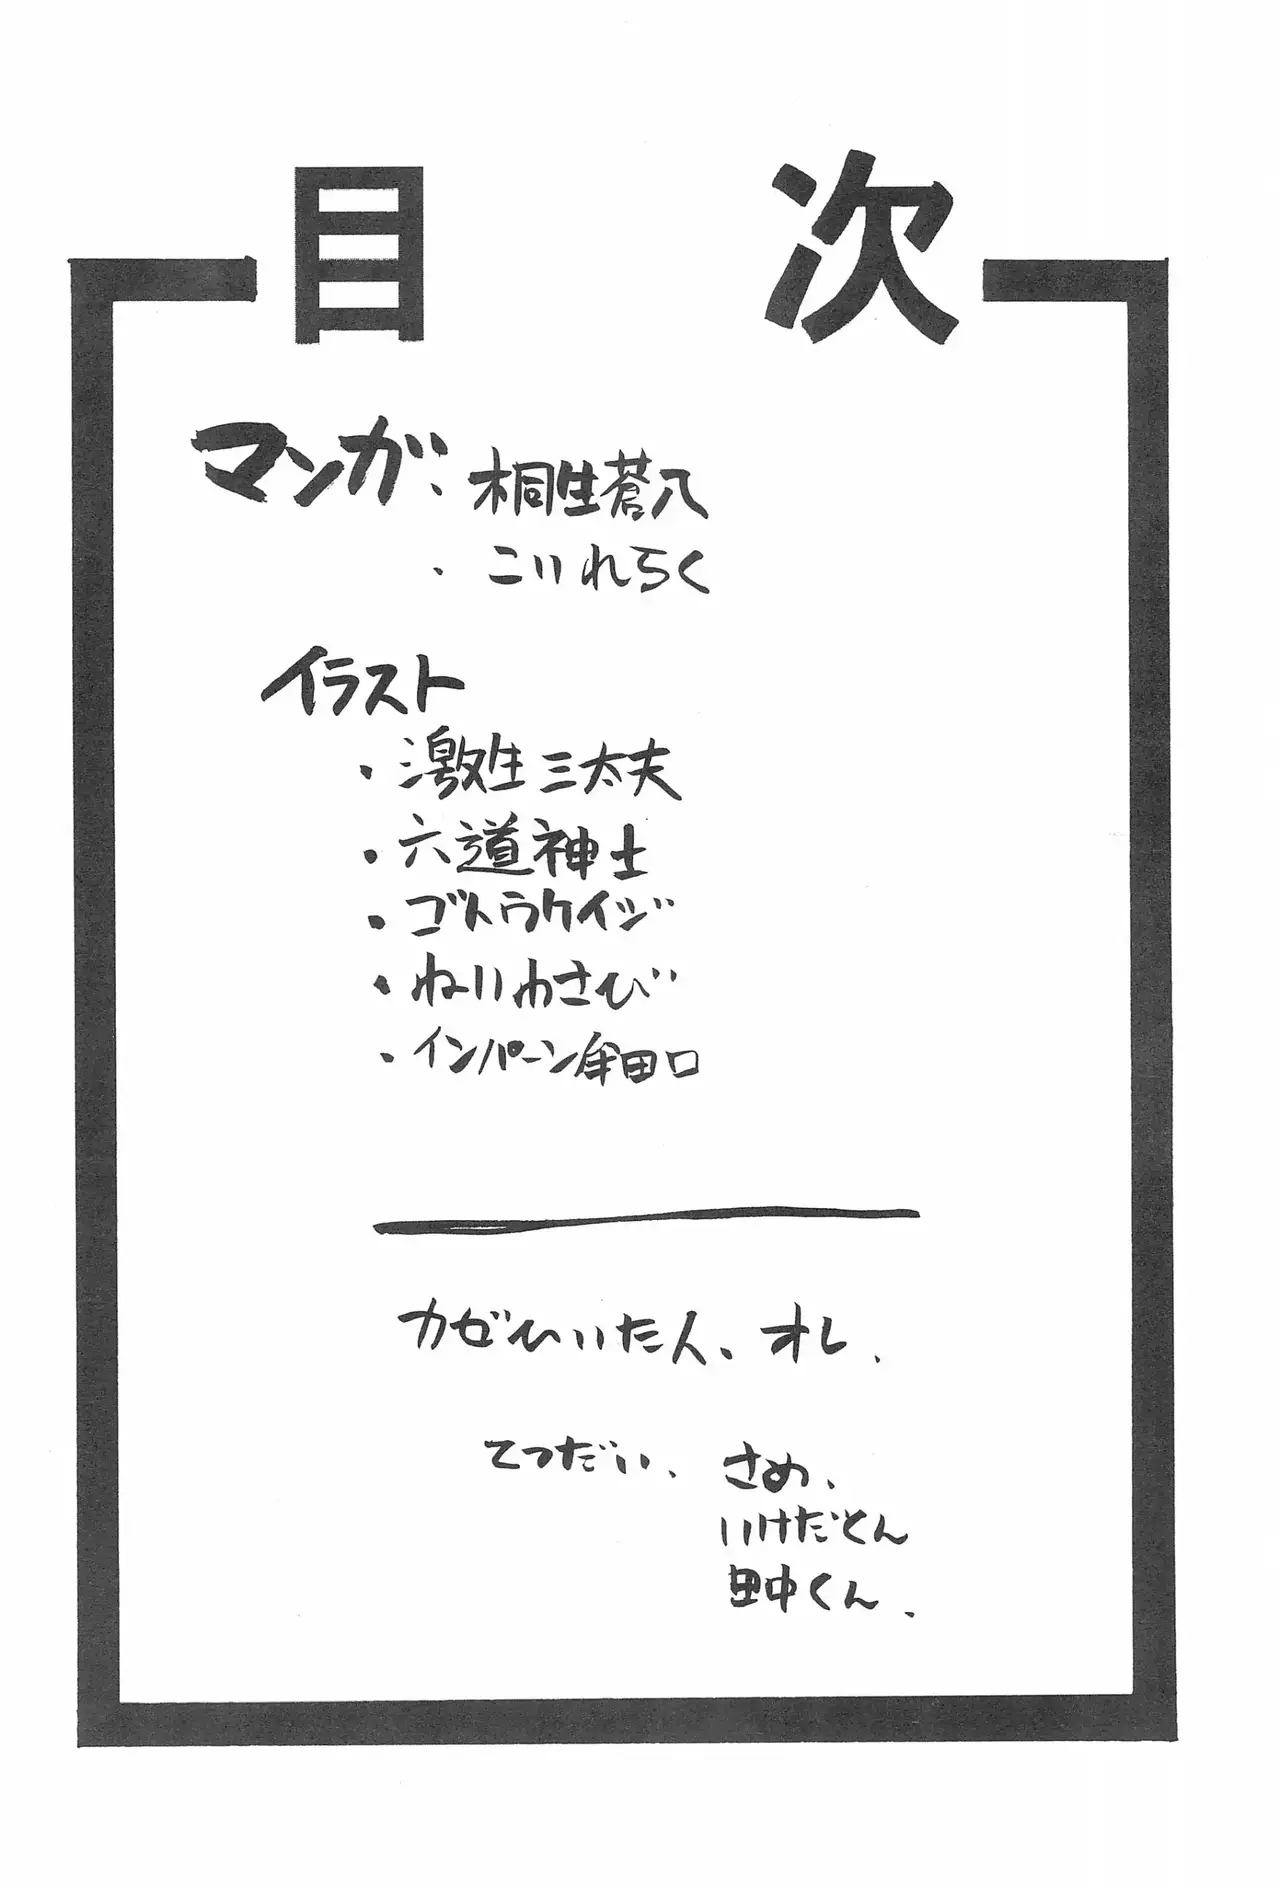 目次
マンガ・桐生蒼八
・こいれらく
イラスト
・激生三太夫
・六道神士
・ゴトウラケイジ
・ねりわさび
・インパーン牟田口
カゼひいた人、オレ.
てつだい、さめ、
いけだとん
田中くん.